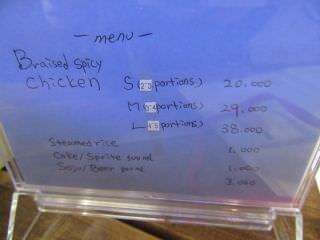 - menu -
Braised spicy
chicken S (2-3 portions) 20.000
M (3-4 portions) 29.000
L (4-5 portions) 38.000
Steamed rice 1.000
Coke/Sprite 1.000
Soju/Beer 3.000